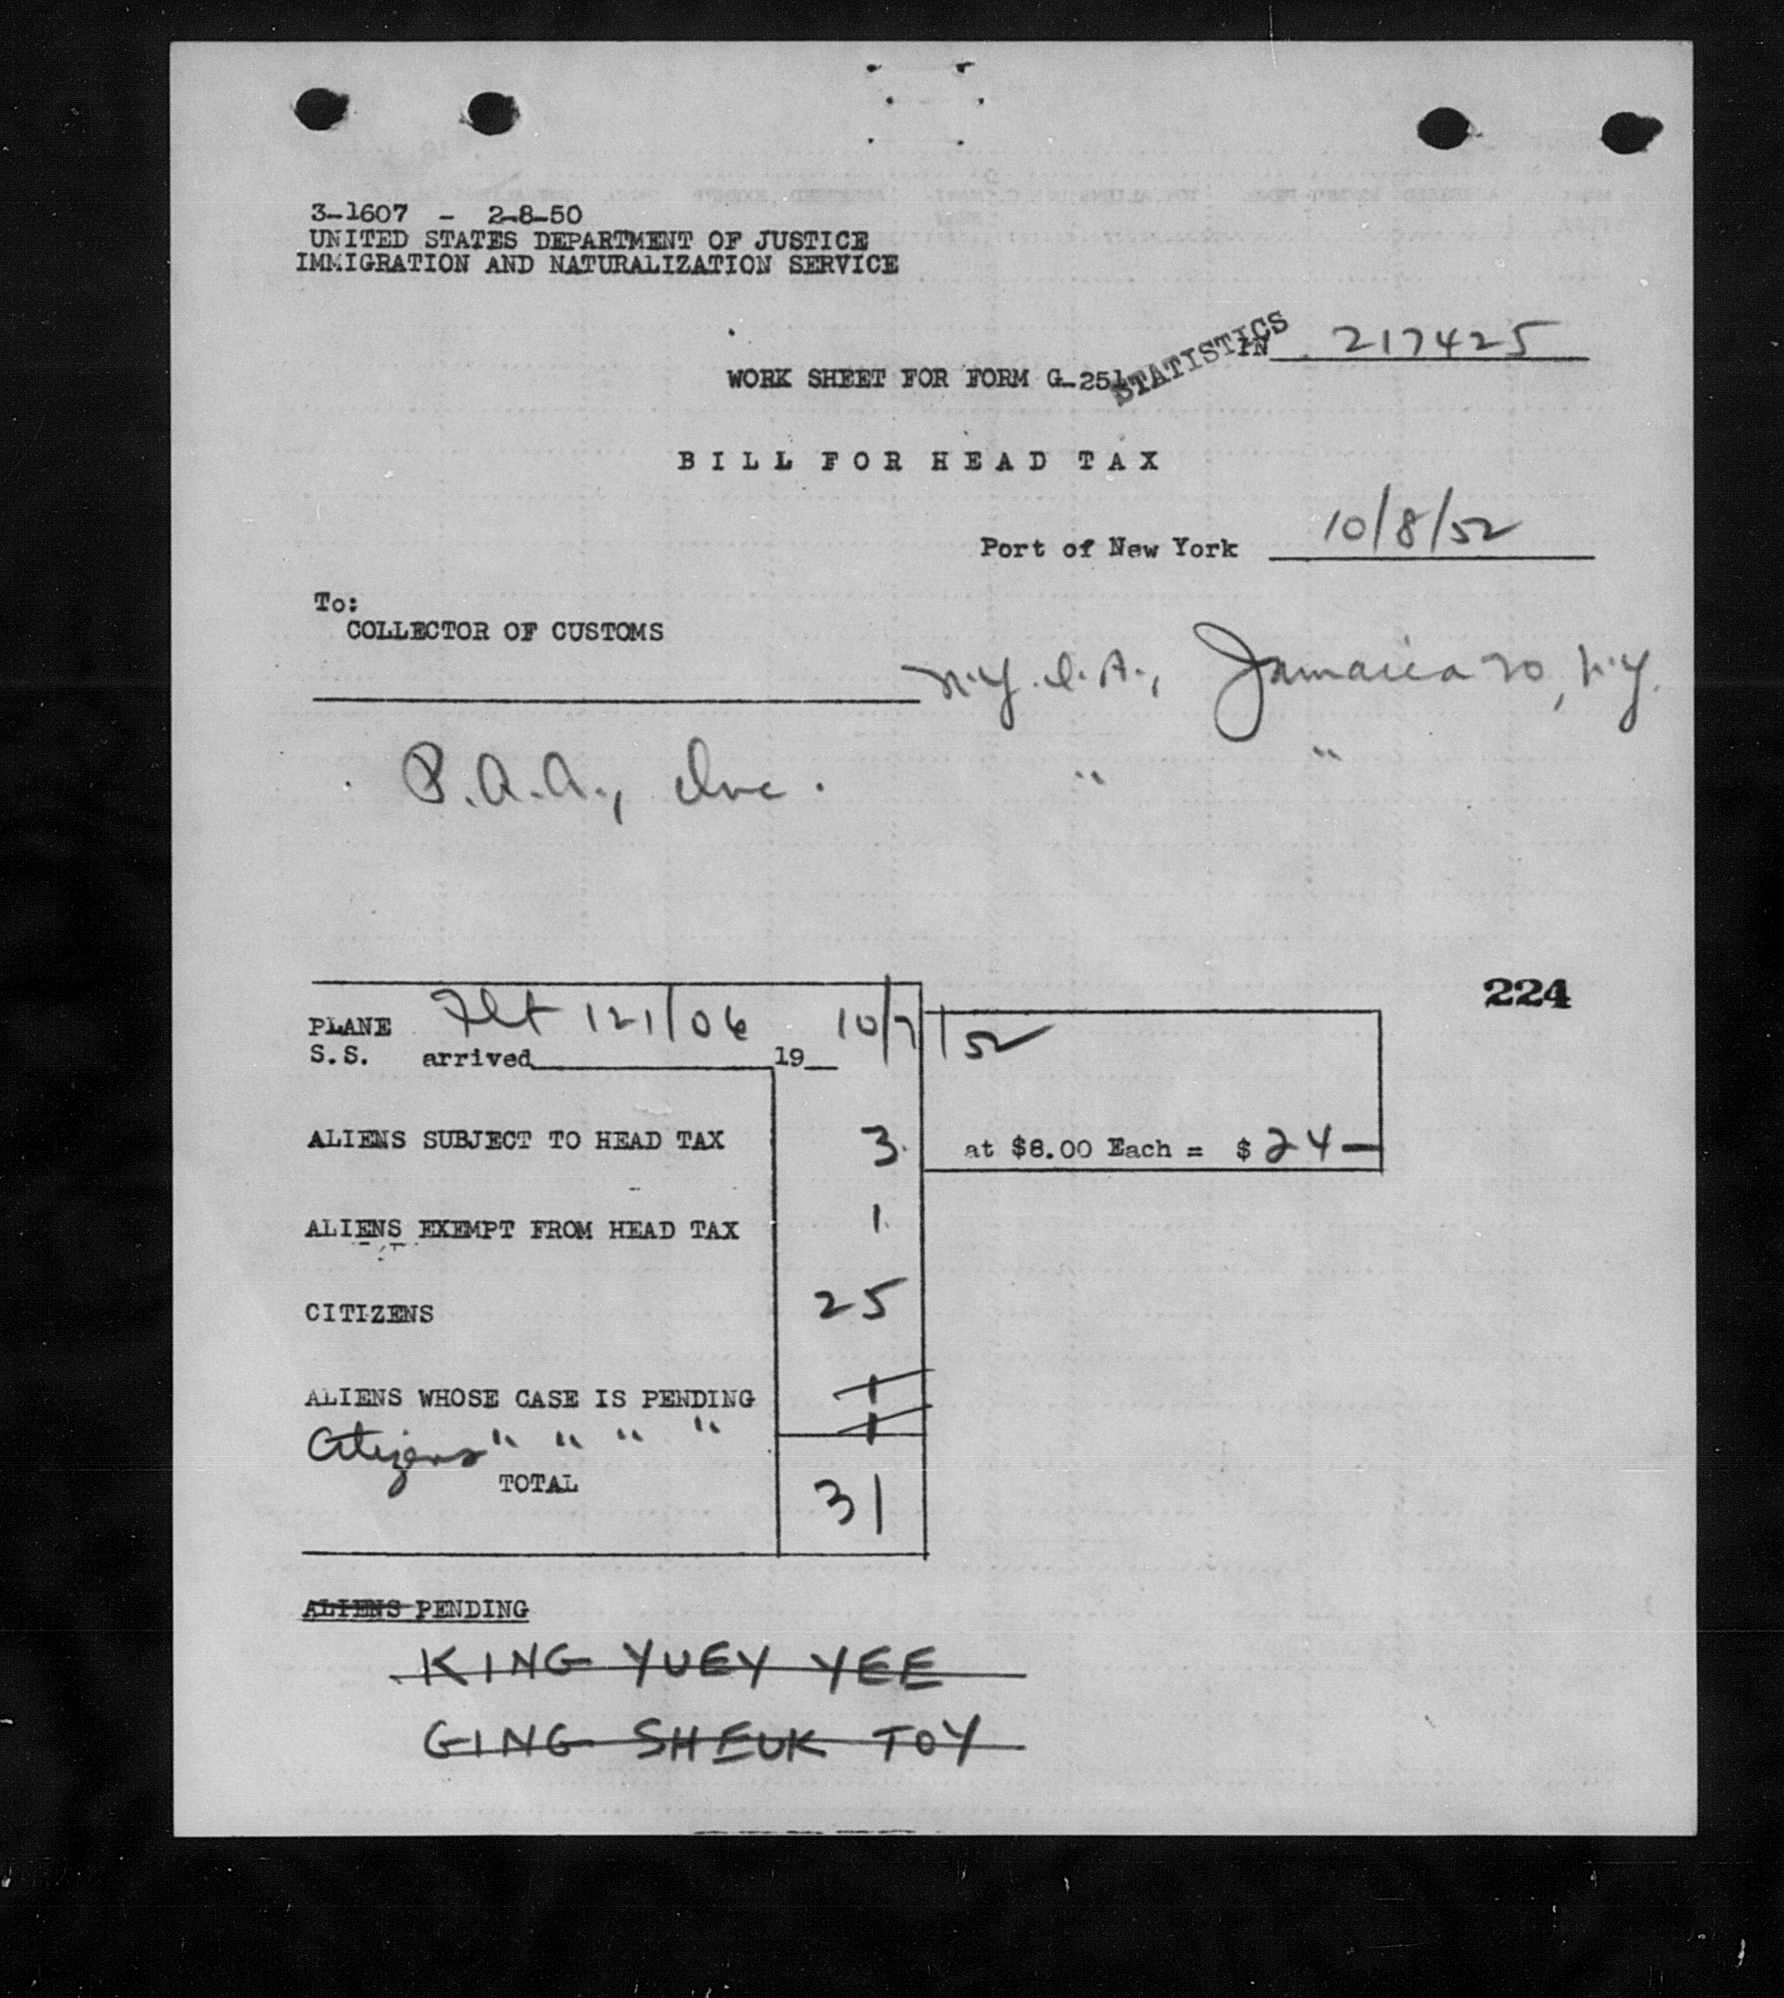 3-1607 - 2-8-50
UNITED STATES DEPARTMENT OF JUSTICE
IMMIGRATION AND NATURALIZATION SERVICE
STATISTICS
IN 217425
WORK SHEET FOR FORM G-251
BILL FOR HEAD TAX
Port of New York 10/8/52
To:
COLLECTOR OF CUSTOMS
N.Y.I.A., Jamaica 20, N.Y.
P.A.A., Inc. " "
224
PLANE Flt 121/06 10/7/52
S.S. arrived 19
ALIENS SUBJECT TO HEAD TAX 3 at $8.00 Each = $ 24—
ALIENS EXEMPT FROM HEAD TAX 1
CITIZENS 25
ALIENS WHOSE CASE IS PENDING 1
Citizens " " " " 1
TOTAL 31
ALIENS PENDING
KING YUEY YEE
GING SHEUK TOY